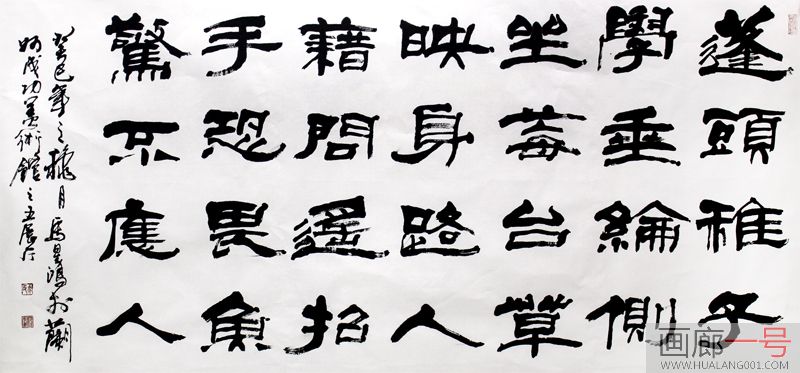 蓬頭稚子
學垂綸側
坐莓台草
映身路人
藉問遥招
手恐畏魚
驚不應人
癸巳年之月馬星鴻於蘭
州成功美術館之五展厅
画廊一号
WWW.HUALANG001.COM